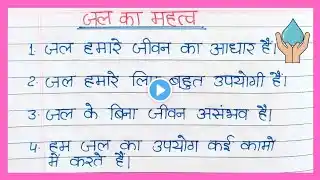 जल का महत्व
1. जल हमारे जीवन का आधार है।
2. जल हमारे लिए बहुत उपयोगी है।
3. जल के बिना जीवन असंभव है।
4. हम जल का उपयोग कई कामो
में करते हैं।